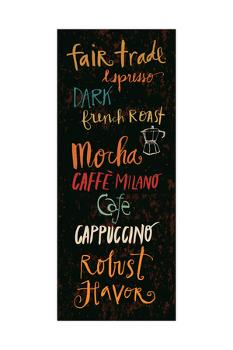 fair trade
Espresso
DARK
french ROAST
Mocha
CAFFÈ MILANO
Cafe
CAPPUCCINO
Robust
FlavoR